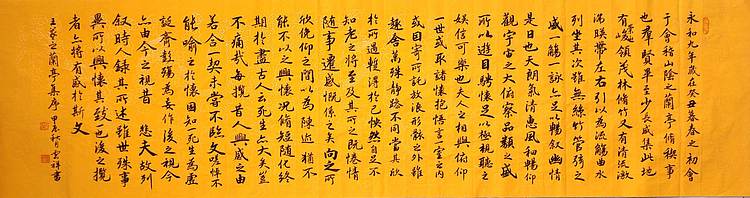 永和九年歲在癸丑暮春之初會
于會稽山陰之蘭亭脩禊事
也群賢畢至少長咸集此地
有崇山峻領茂林脩竹又有清流激
湍暎帶左右引以為流觴曲水
列坐其次雖無絲竹管弦之
盛一觴一詠亦足以暢敘幽情
是日也天朗氣清惠風和暢仰
觀宇宙之大俯察品類之盛
所以遊目騁懷足以極視聽之
娛信可樂也夫人之相與俯仰
一世或取諸懷抱悟言一室之內
或因寄所託放浪形骸之外雖
趣舍萬殊靜躁不同當其欣
於所遇蹔得於己怏然自足不
知老之將至及其所之既惓情
隨事遷感慨係之矣向之所
欣俛仰之間以為陳迹猶不
能不以之興懷況脩短隨化終
期於盡古人云死生亦大矣豈
不痛哉每攬昔人興感之由
若合一契未嘗不臨文嗟悼不
能喻之於懷固知一死生為虛
誕齊彭殤為妄作後之視今
亦由今之視昔 悲夫故列
敘時人錄其所述雖世殊事
異所以興懷其致一也後之攬
者亦將有感於斯文
王羲之蘭亭集序 甲午秋月雲祥書